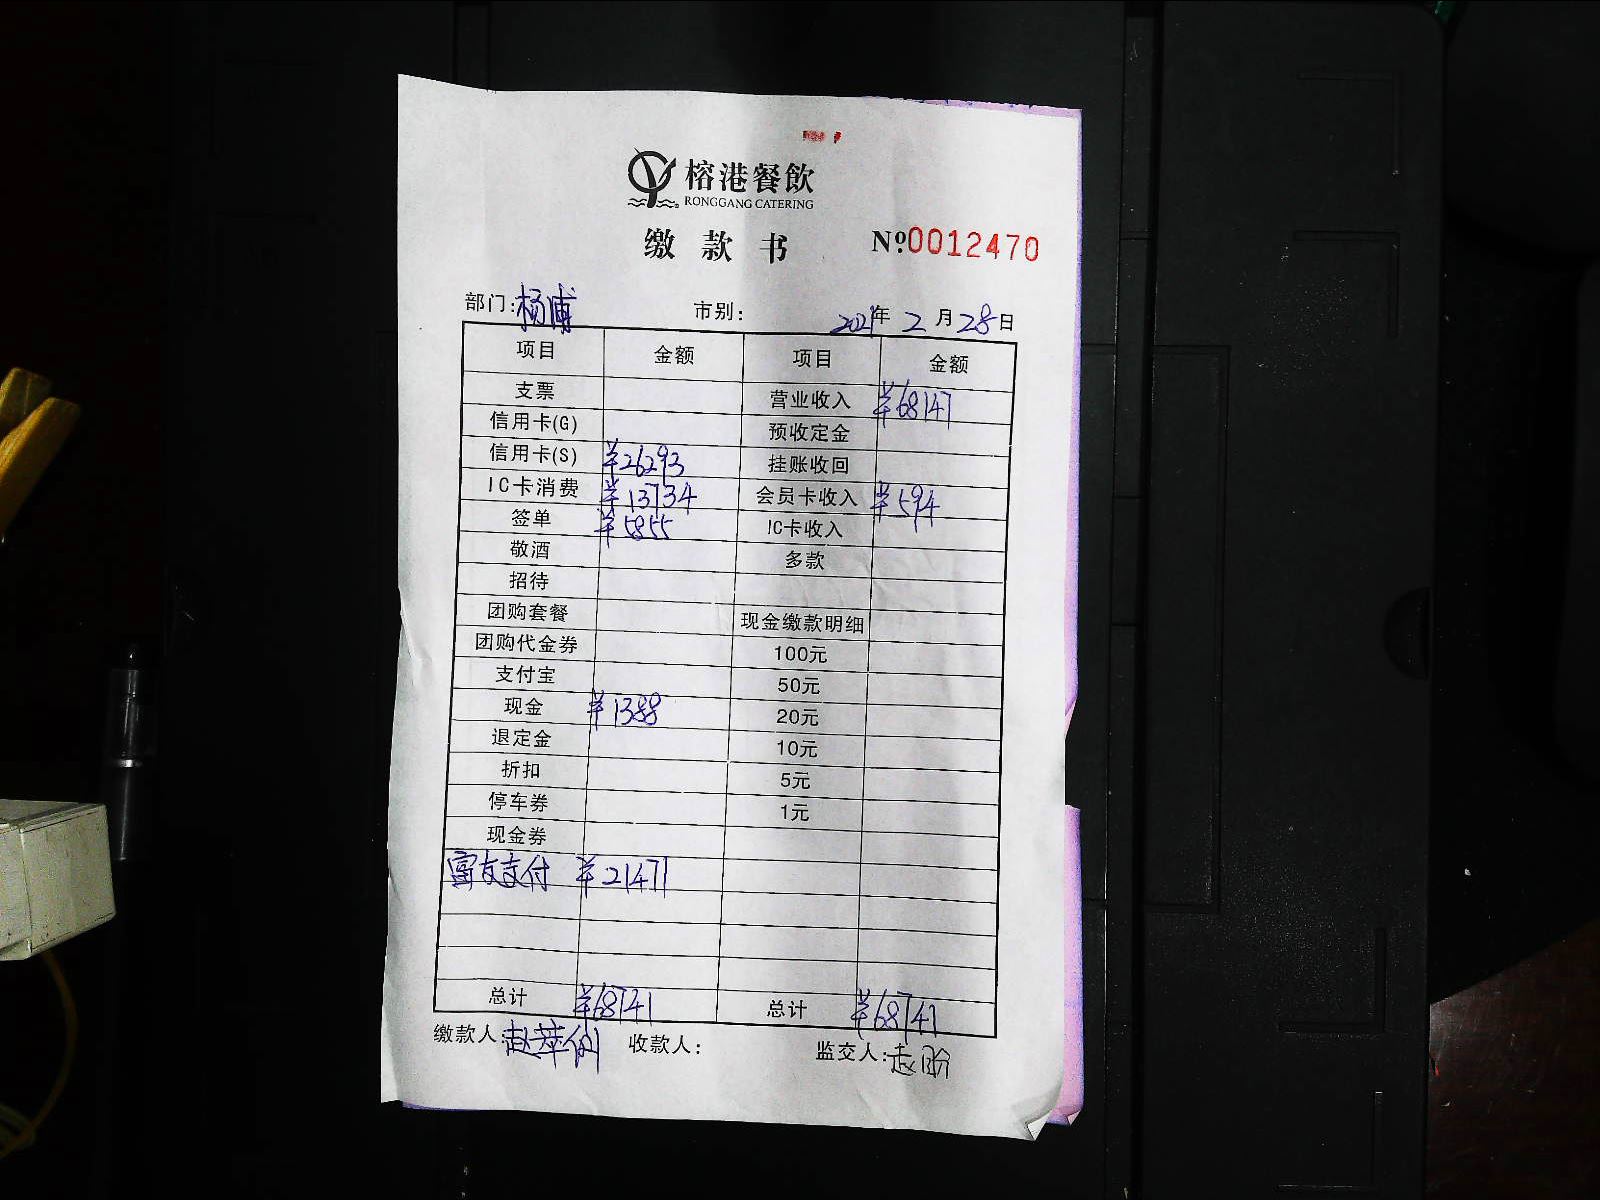 榕港餐飲
RONGGANG CATERING
缴款书 №0012470
部门:杨浦 市别: 2021年2月28日
项目 金额 项目 金额
支票 营业收入 ¥68147
信用卡(G) 预收定金
信用卡(S) ¥26293 挂账收回
IC卡消费 ¥13734 会员卡收入 ¥594
签单 ¥5855 IC卡收入
敬酒 多款
招待
团购套餐 现金缴款明细
团购代金券 100元
支付宝 50元
现金 ¥1388 20元
退定金 10元
折扣 5元
停车券 1元
现金券
富友支付 ¥21471
总计 ¥68741 总计 ¥68741
缴款人:赵萍 收款人: 监交人: